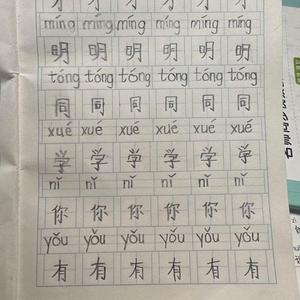 míng míng míng míng míng míng
明 明 明 明 明 明
tóng tóng tóng tóng tóng tóng
同 同 同 同 同 同
xué xué xué xué xué xué
学 学 学 学 学 学
nǐ nǐ nǐ nǐ nǐ nǐ
你 你 你 你 你 你
yǒu yǒu yǒu yǒu yǒu yǒu
有 有 有 有 有 有